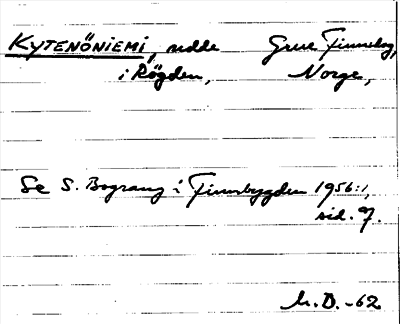 KYTENÖNIEMI, udde Grue Finnskog,
i Rögden, Norge,
Se S. Bograng i Finnbygden 1956:1,
sid. 7.
M.B. -62